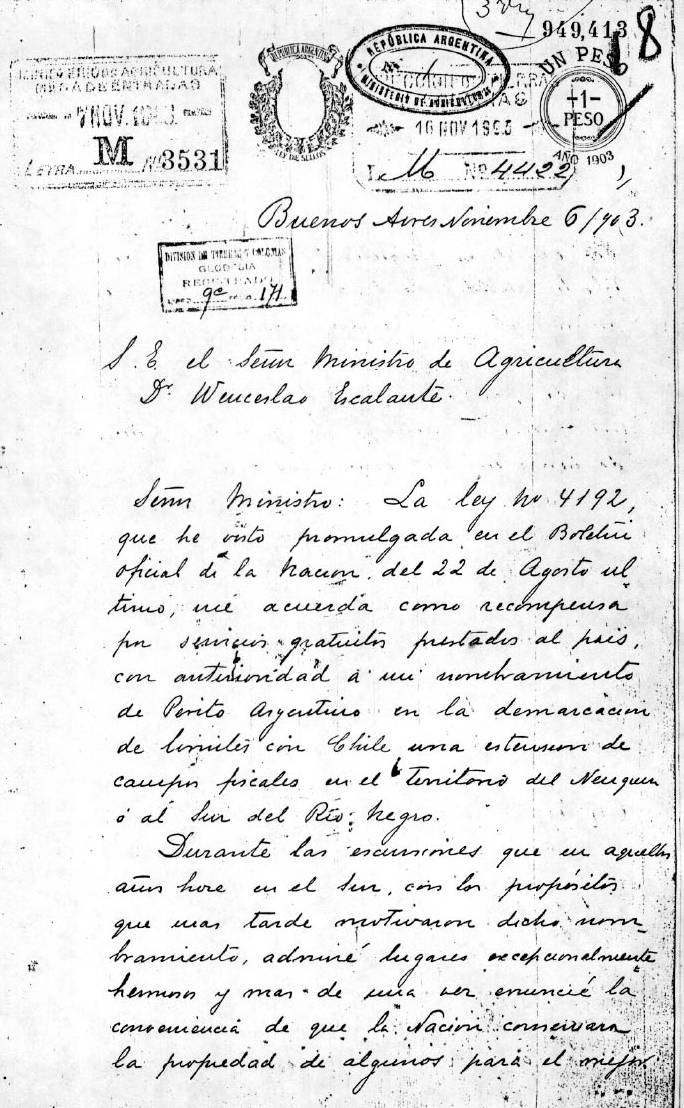 3
949,413
18
MINISTERIO DE AGRICULTURA
MESA DE ENTRADAS
7 NOV. 1903
LETRA M No 3531
REPUBLICA ARGENTINA
LEY DE SELLOS
REPÚBLICA ARGENTINA
No 1
MINISTERIO DE AGRICULTURA
16 NOV 1903
L. M No 4422
UN PESO
-1-
PESO
AÑO 1903
Buenos Aires Noviembre 6/903.
DIVISION DE TIERRAS Y COLONIAS
GEODESIA
REGISTRADO
171
S. E. el Señor Ministro de Agricultura
Dr Wenceslao Escalante.
Señor Ministro: La ley No 4192,
que he visto promulgada en el Boletin
oficial de la Nacion, del 22 de Agosto ul
timo, me acuerda como recompensa
por servicios gratuitos prestados al pais,
con anterioridad á mi nombramiento
de Perito Argentino en la demarcacion
de limites con Chile una estension de
campos fiscales en el territorio del Neuquen
ó al Sur del Rio Negro.
Durante las escursiones que en aquellos
años hice en el Sur, con los propósitos
que mas tarde motivaron dicho nom-
bramiento, admiré lugares excepcionalmente
hermosos y mas de una vez enuncié la
conveniencia de que la Nacion conservara
la propiedad de algunos para el mejor